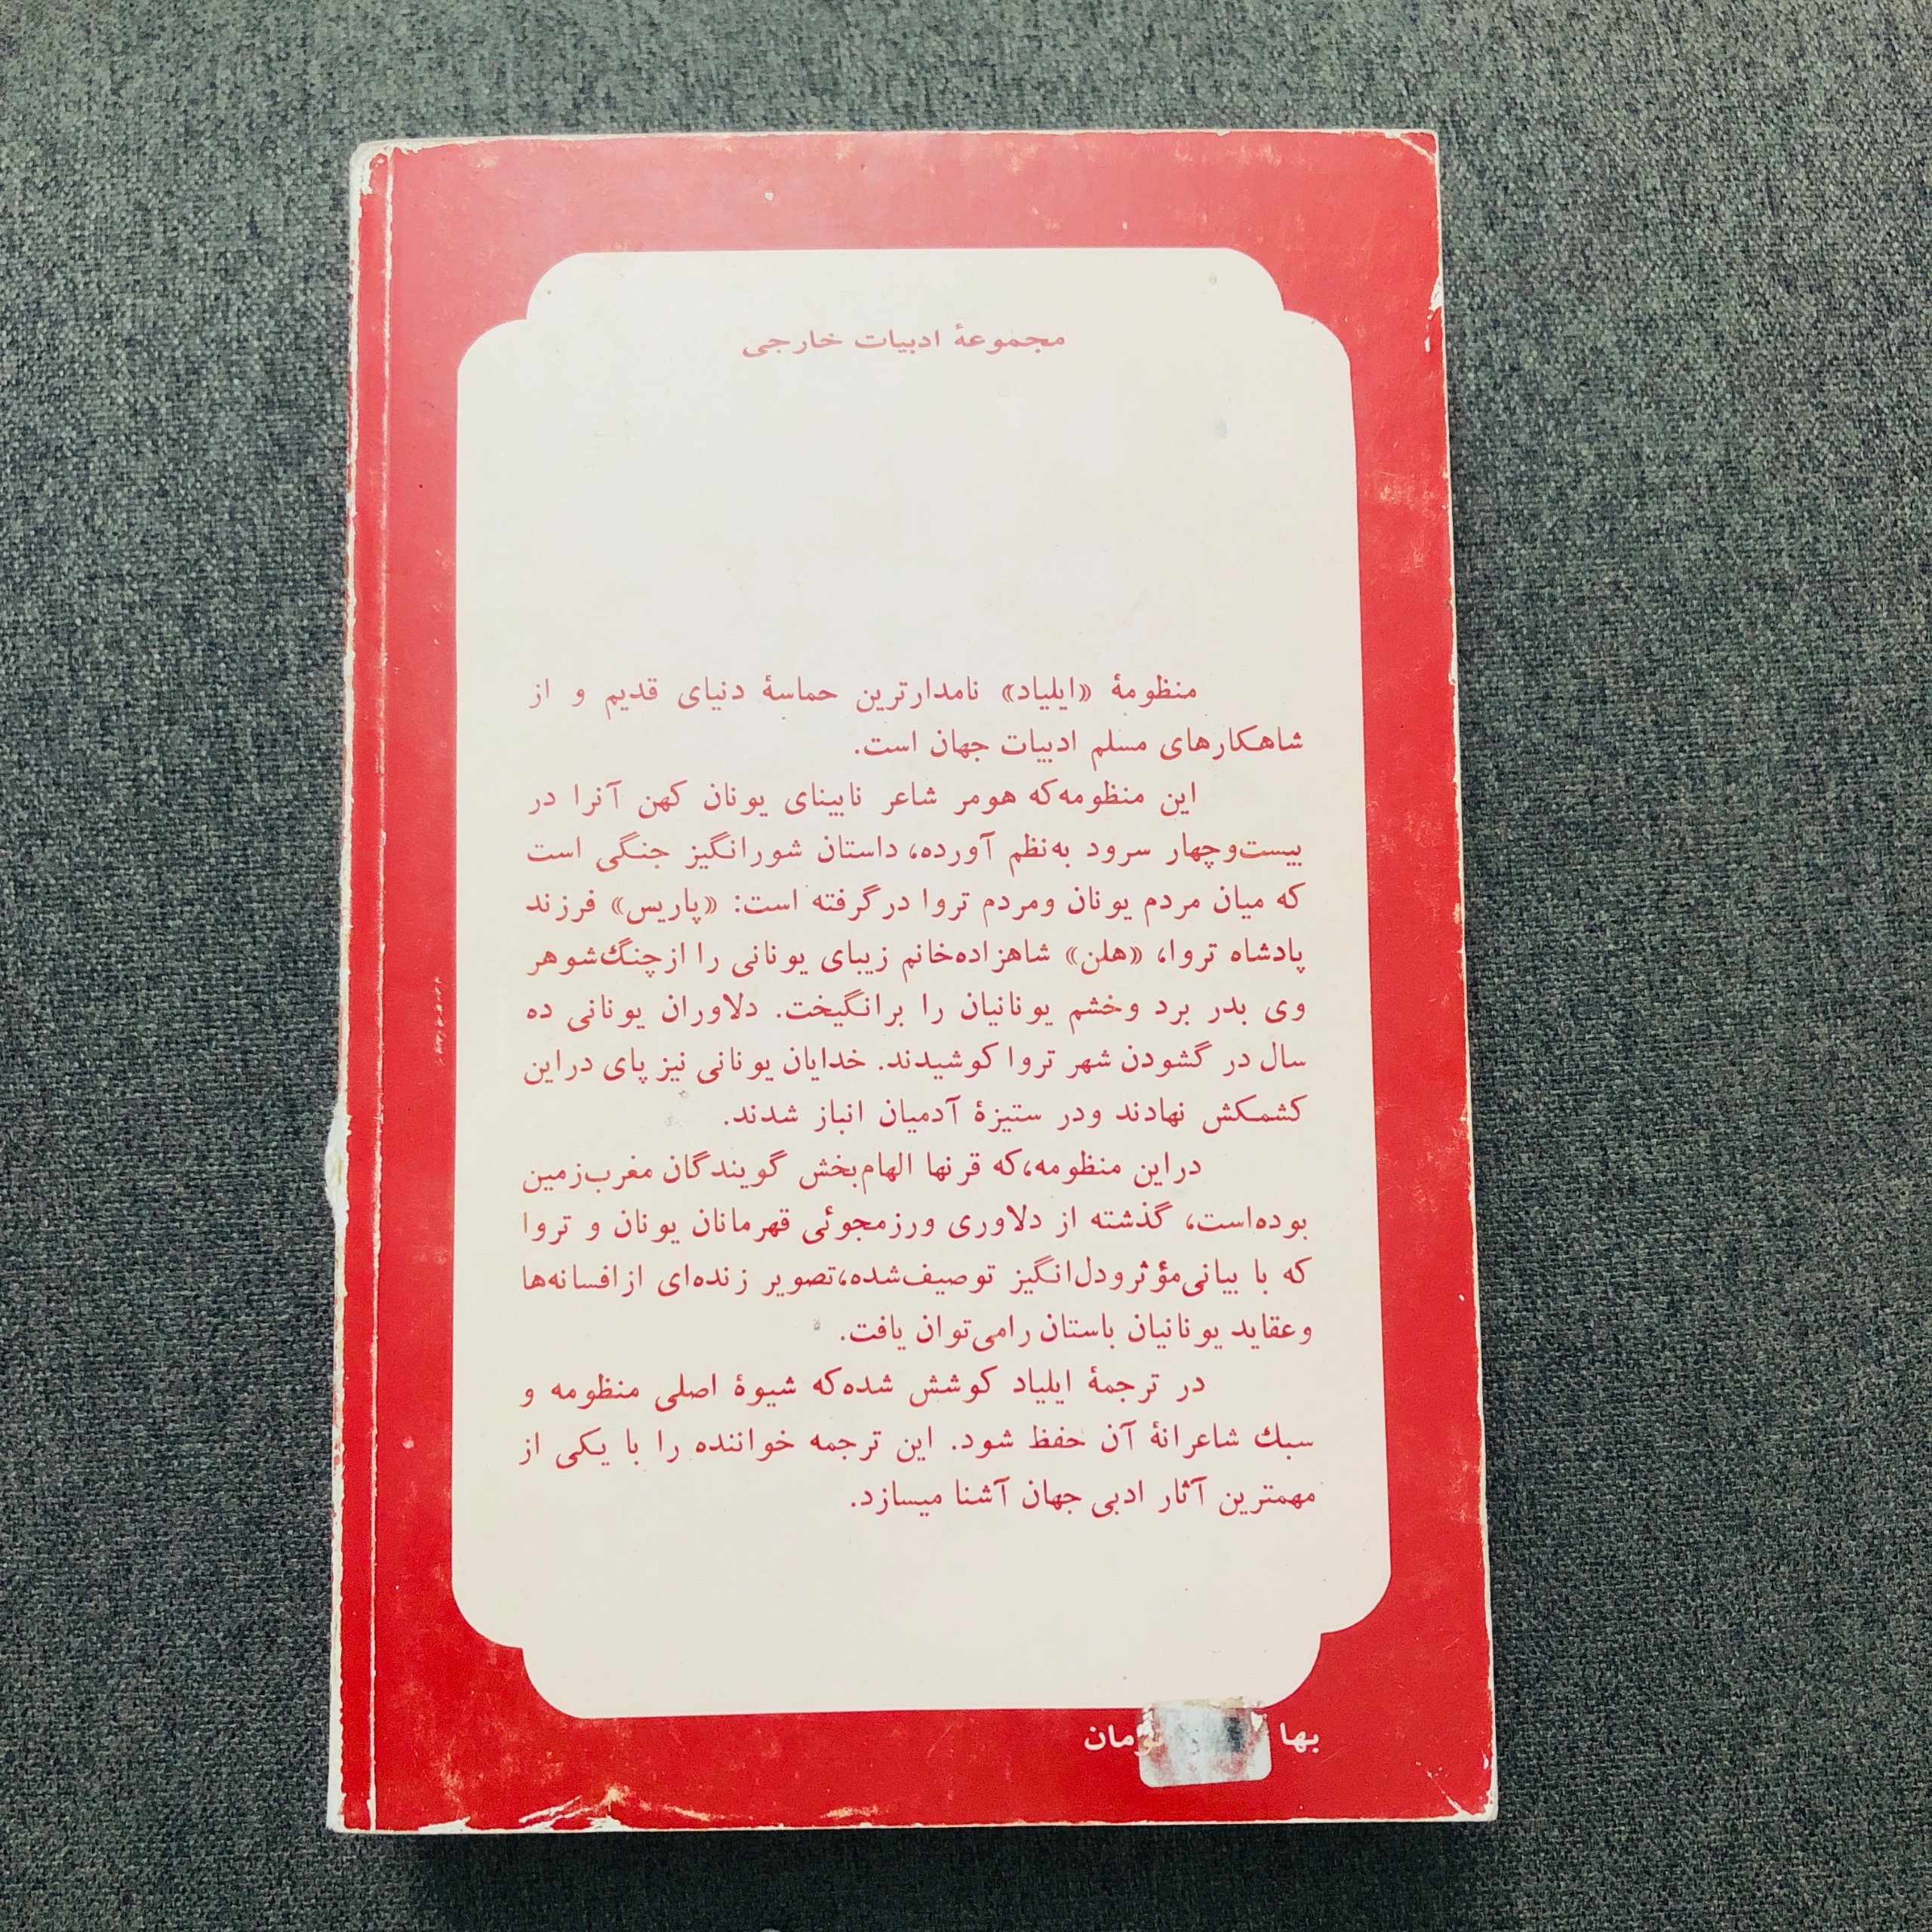 مجموعهٔ ادبیات خارجی
منظومهٔ «ایلیاد» نامدارترین حماسهٔ دنیای قدیم و از
شاهکارهای مسلم ادبیات جهان است.
این منظومه‌که هومر شاعر نابینای یونان کهن آنرا در
بیست‌و‌چهار سرود به‌نظم آورده، داستان شورانگیز جنگی است
که میان مردم یونان ومردم تروا درگرفته است: «پاریس» فرزند
پادشاه تروا، «هلن» شاهزاده‌خانم زیبای یونانی را ازچنگ‌شوهر
وی بدر برد وخشم یونانیان را برانگیخت. دلاوران یونانی ده
سال در گشودن شهر تروا کوشیدند. خدایان یونانی نیز پای دراین
کشمکش نهادند ودر ستیزهٔ آدمیان انباز شدند.
دراین منظومه،که قرنها الهام‌بخش گویندگان مغرب‌زمین
بوده‌است، گذشته از دلاوری ورزمجوئی قهرمانان یونان و تروا
که با بیانی‌مؤثرودل‌انگیز توصیف‌شده،تصویر زنده‌ای ازافسانه‌ها
وعقاید یونانیان باستان رامی‌توان یافت.
در ترجمهٔ ایلیاد کوشش شده‌که شیوهٔ اصلی منظومه و
سبك شاعرانهٔ آن حفظ شود. این ترجمه خواننده را با یکی از
مهمترین آثار ادبی جهان آشنا میسازد.
بها تومان